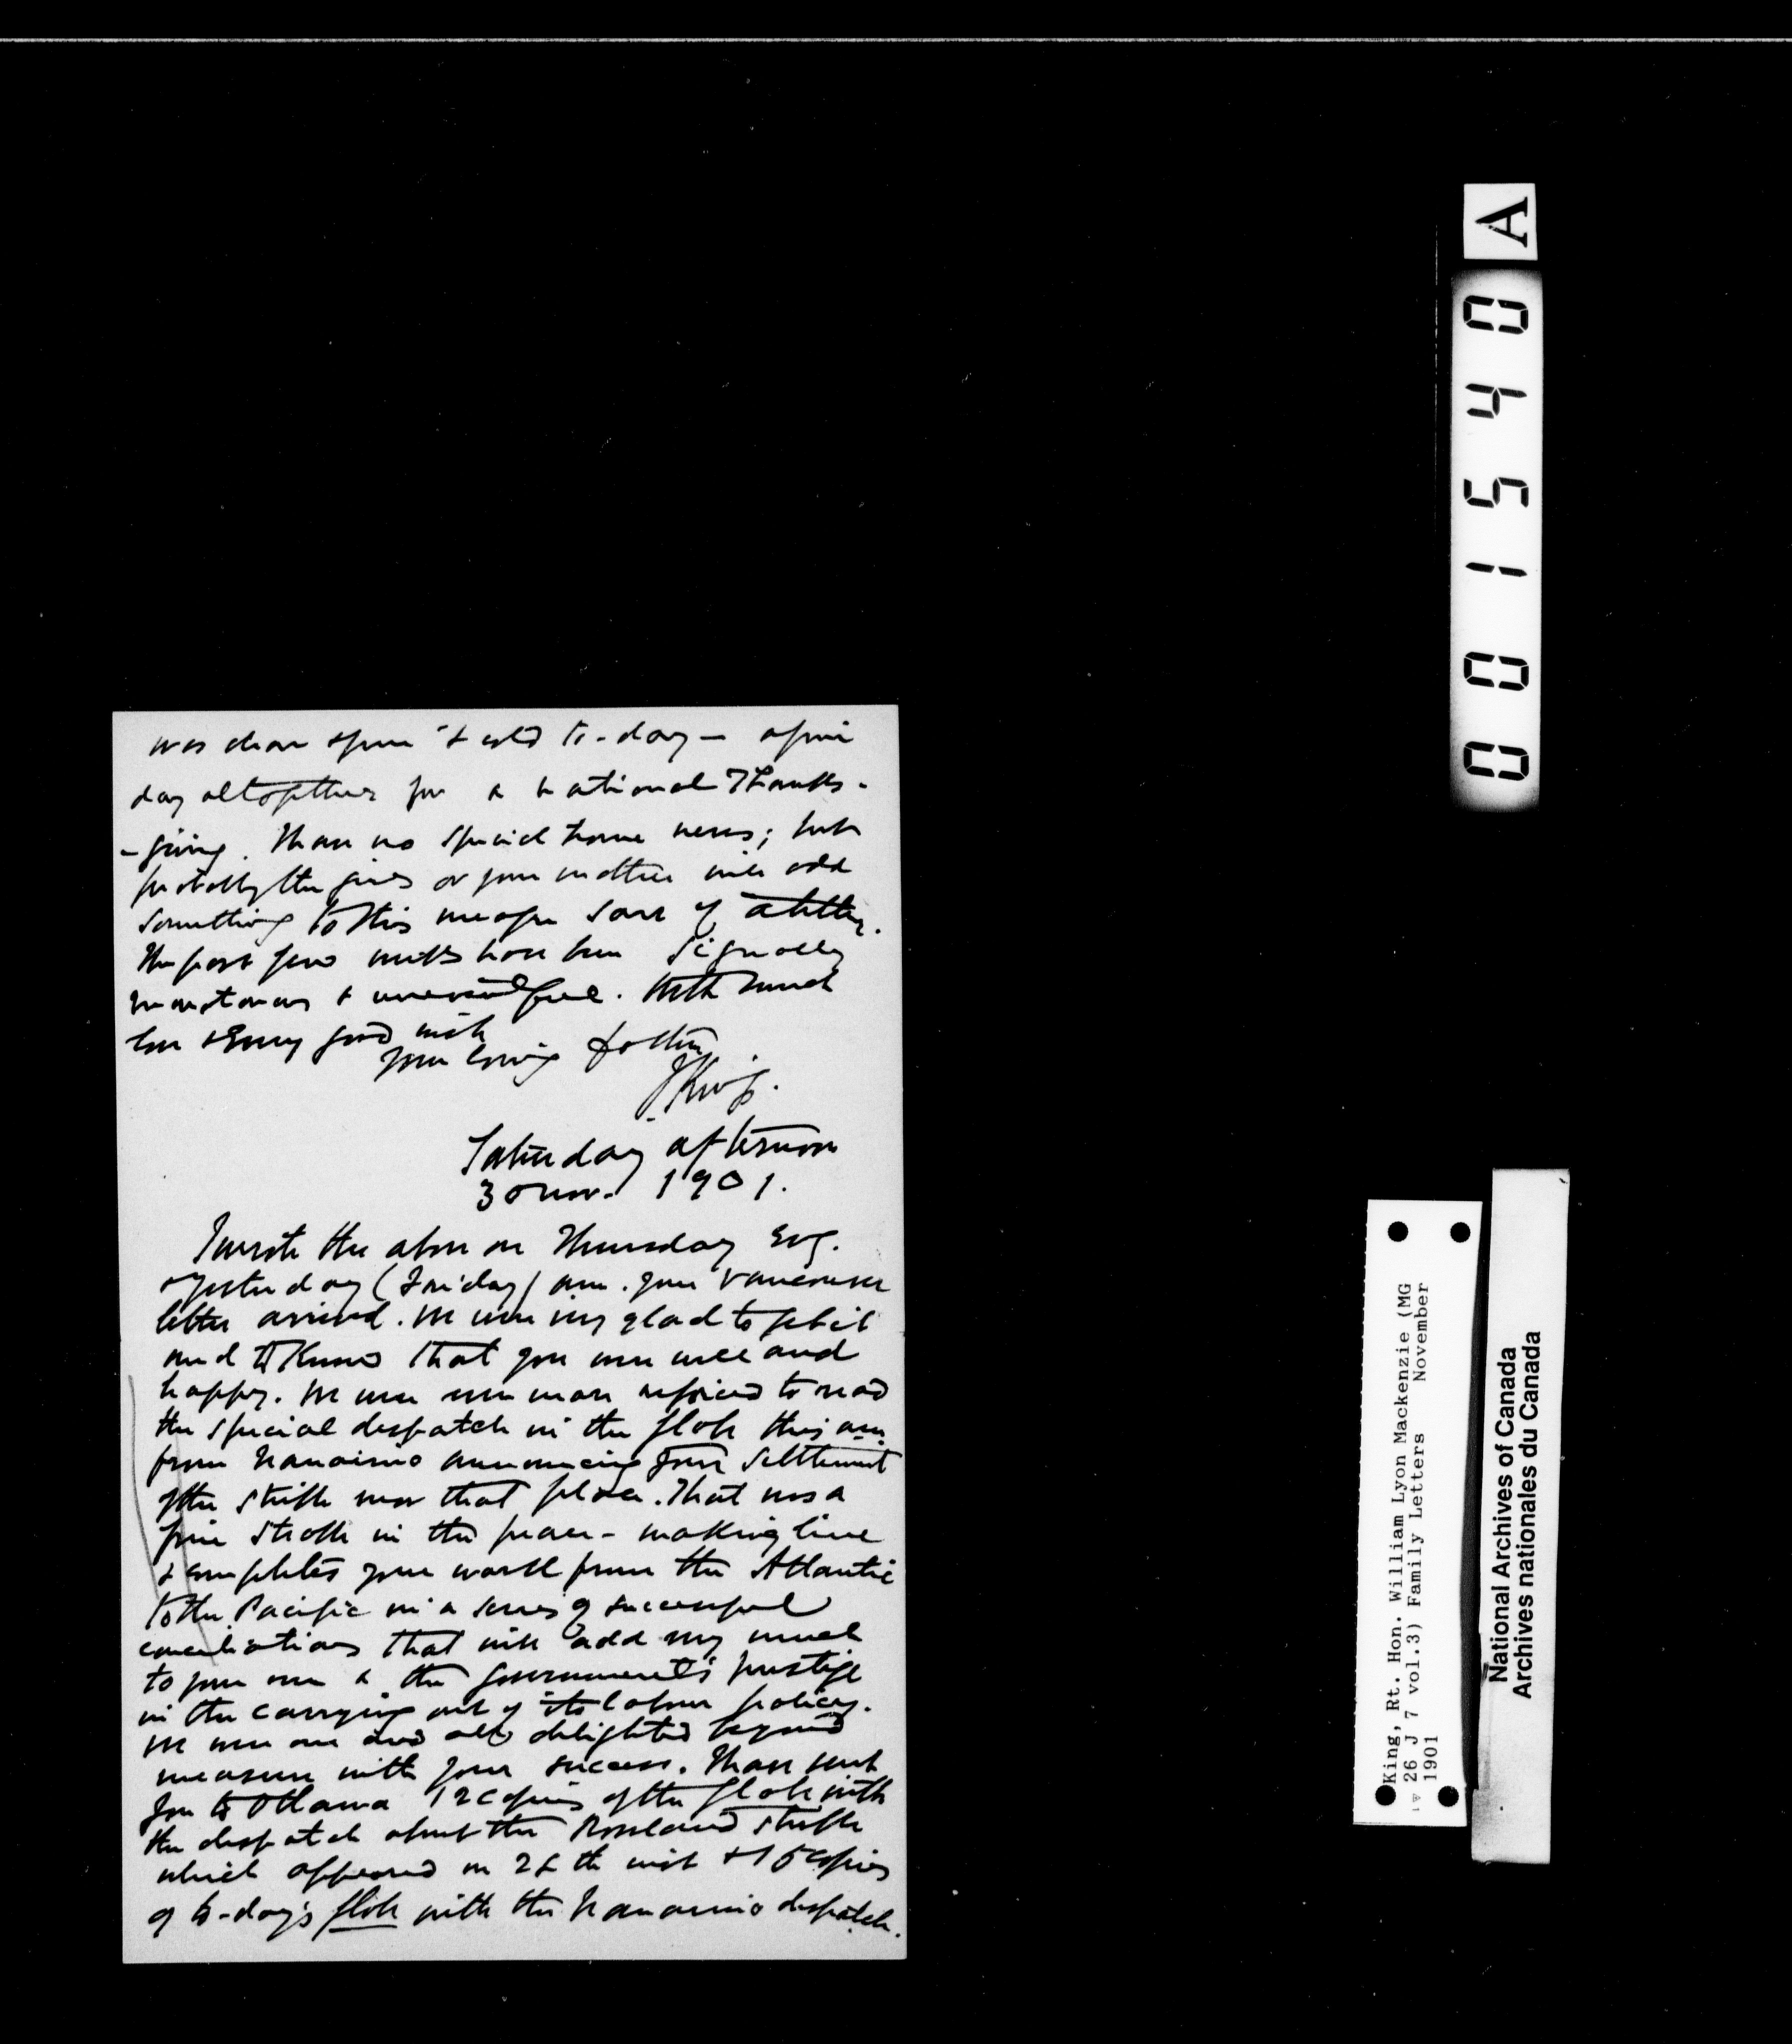 was clear & cold to-day — a fine
day altogether for a national Thanks-
-giving. I have no special home news; but
probably the girls or your mother will add
something to this meagre sort of a letter.
The past few weeks have been signally
monotonous & uneventful. With much
love & every good wish
your loving father
J King.
Saturday afternoon
30 Nov. 1901.
I wrote the above on Thursday Evg.
Yesterday (Friday) a.m. your Vancouver
letter arrived. We were very glad to get it
and to know that you were well and
happy. We were even more rejoiced to read
the special despatch in the Globe this a.m.
from Nanaimo announcing your settlement
of the strike near that place. That was a
fine stroke in the peace-making line
& completes your work from the Atlantic
to the Pacific in a series of successful
conciliations that will add very much
to your own & the government's prestige
in the carrying out of its labour policy.
We were one and all delighted beyond
measure with your success. I have sent
you to Ottawa 12 copies of the Globe with
the despatch about the Rossland strike
which appeared on th inst & 15 copies
of to-day's Globe with the Nanaimo despatch.
A
0 0 1 5 4 0
King, Rt. Hon. William Lyon Mackenzie (MG
26 J 7 vol.3) Family Letters November
1901
National Archives of Canada
Archives nationales du Canada